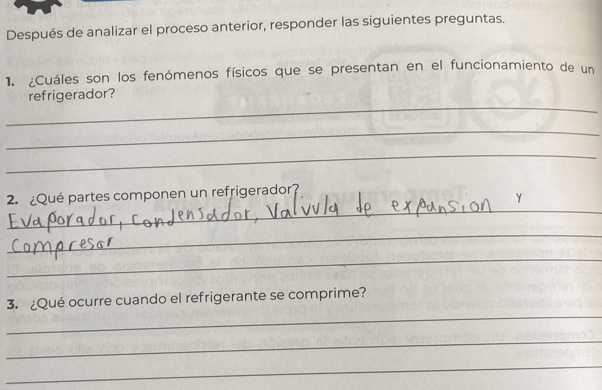 Después de analizar el proceso anterior, responder las siguientes preguntas.
1. ¿Cuáles son los fenómenos físicos que se presentan en el funcionamiento de un
refrigerador?
2. ¿Qué partes componen un refrigerador?
Evaporador, condensador, Valvula de expansion y
Compresor
3. ¿Qué ocurre cuando el refrigerante se comprime?